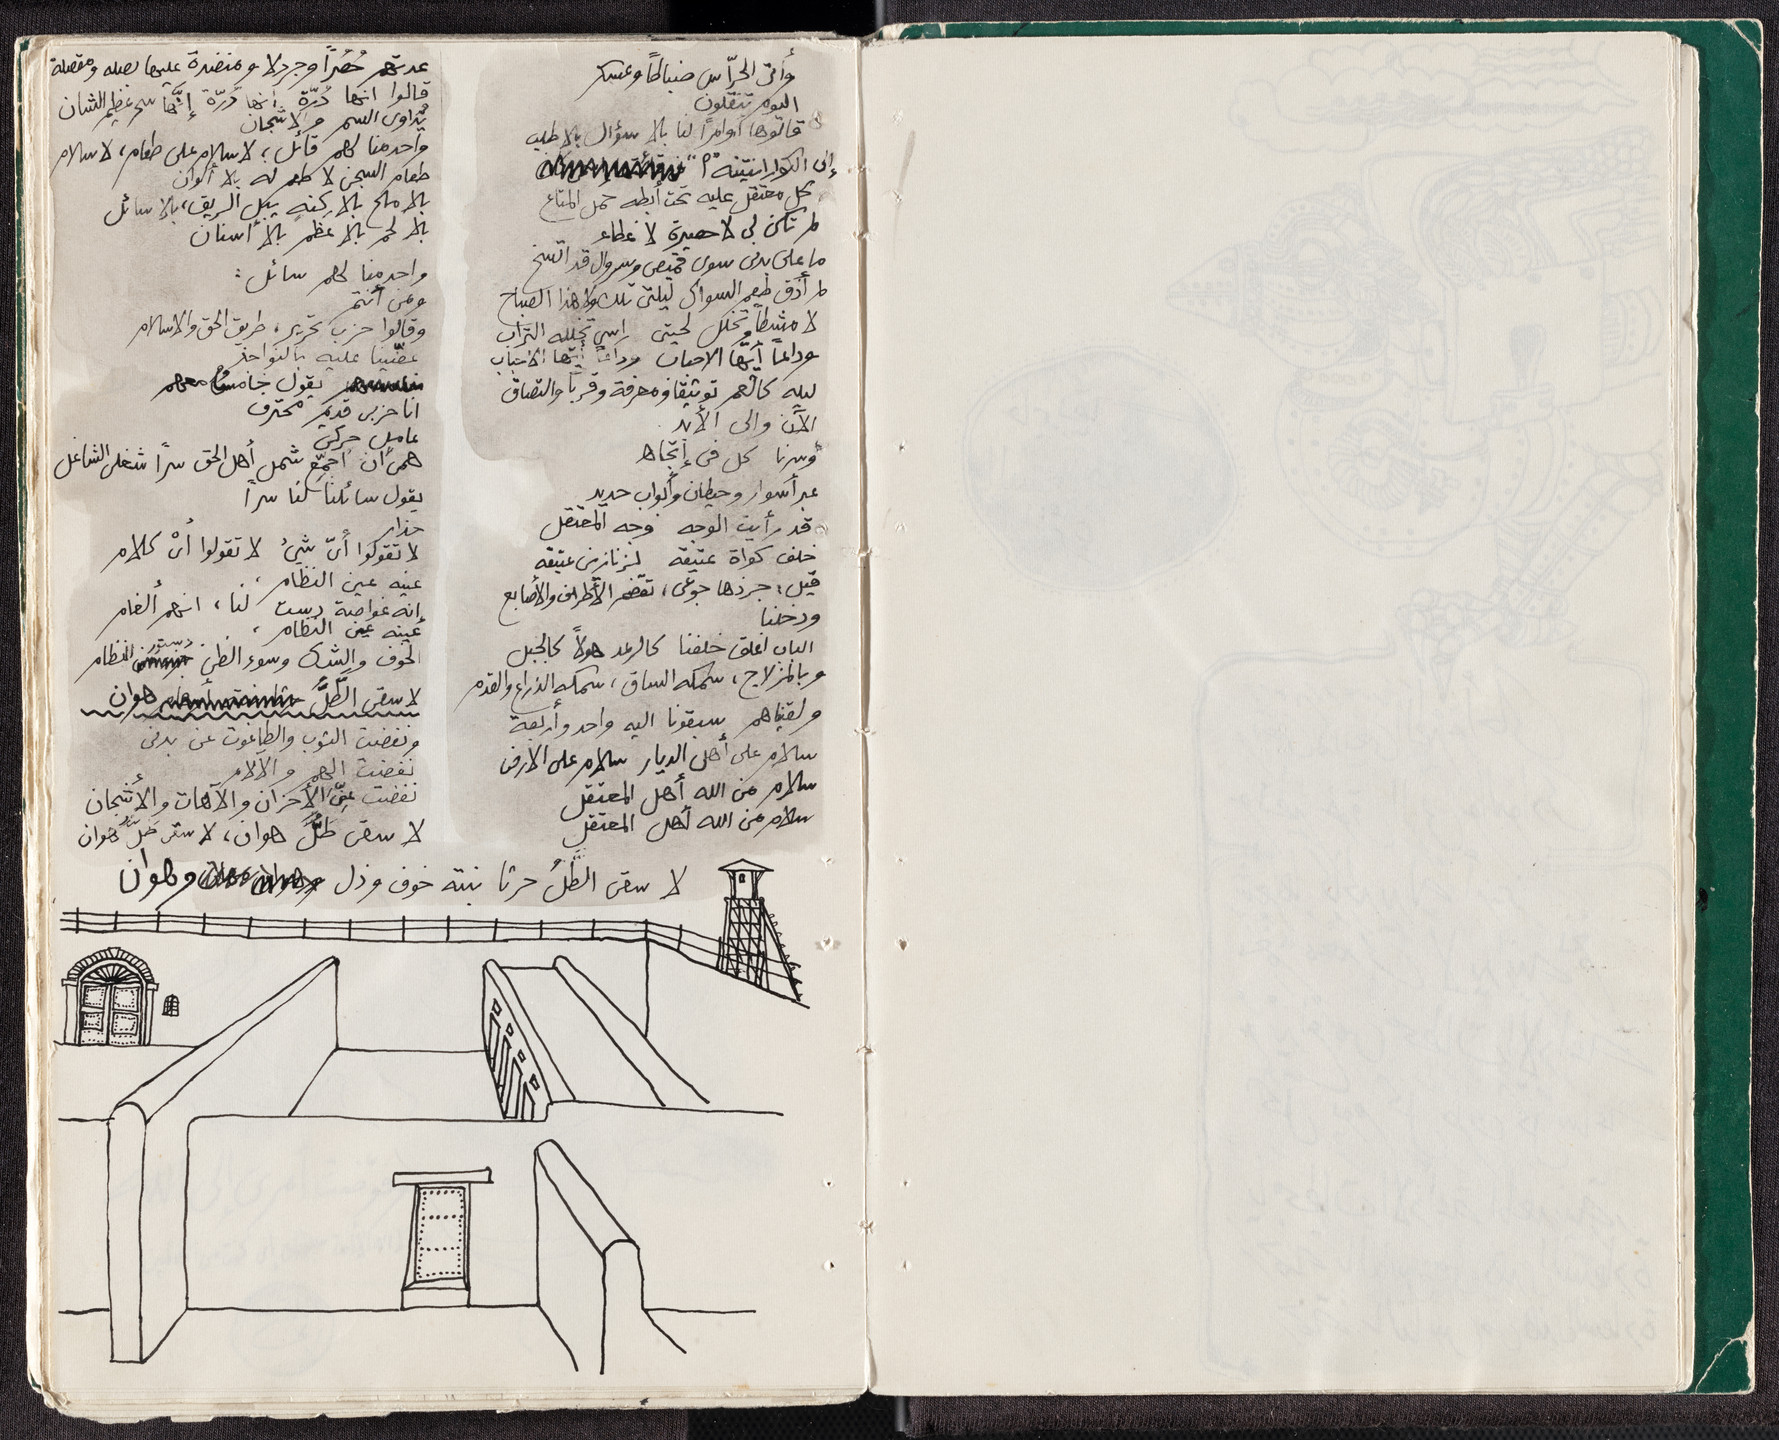 وأتى الحرّاس ضباطاً وعسكر
اليوم تنقلون
قالوها أوامراً لنا بلا سؤال بلا طلب
إلى الكوارنتينه
كل معتقل عليه تحت أبطه حمل المتاع
لم تكن لى لا حصيرة لا غطاء
ما على بدنى سوى قميصى وسروال قد اتسخ
لم أذق طعم السواك ليلتى تلك ولا هذا الصباح
لا مشطاً تخلل لحيتى راسي تخلله التراب
وداعاً أيّها الاحباب وداعاً أيّها الاحباب
ليله كالعمر توثيقا ومعرفة وقرباً والتصاق
الآن والى الأبد
وسرنا كل فى إتجاه
عبر أسوار وحيطان وأبواب حديد
قد رأيت الوجه وجه المعتقل
خلف كواة عتيقه لزنازين عتيقه
قيل: جرذها جوعى، تقضم الأطراف والأصابع
ودخلنا
الباب أغلق خلفنا كالرعد هولاً كالجبل
وبالمزلاج، سمكه الساق، سمكه الذراع والقدم
ولقيناهم سبقونا اليه واحد وأربعة
سلام على أهل الديار سلام على الارض
سلام من الله أهل المعتقل
سلام من الله أهل المعتقل
عدتهم حُصُراً وجردلا ومنضدة عليها بصله ومقصلة
قالوا انها دُرّة انها دُرّة إنّها سحر عظيم الشان
تُداوى السم والاشجان
واحد منا لهم قائل: لا سلام على طعام، لا سلام
طعام السجن لا طعم له بلا ألوان
بلا ملح بلا ركنه يبل الريق، بلا سائل
بلا لحم بلا عظم بلا أسنان
واحد منا لهم سائل:
ومن أنتم
وقالوا حزب تحرير، طريق الحق والاسلام
عضّينا عليه بالنواجذ
يقول خامسٌ معهم
انا حزبى قديم محترف
عامل حركى
همى أن أجمّع شمل أهل الحق سراً شغلى الشاغل
يقول سائلنا لنا سراً
حذار
لا تقولوا أىّ شيئ لا تقولوا أىّ كلام
عينه عين النظام،
إنه غواصة دست لنا، انهم ألغام
عينه عين النظام،
الخوف والشك وسوء الظن دستور النظام
لا سقى الطَّلُّ هوان
ونفضت الثوب والطاغوت عن بدنى
نفضت الهم والآلام
نفضت عنّى الأحزان والآهات والأشجان
لا سقى طلٌّ هوان، لا سقى طلٌّ هوان
لا سقى الطَّلُّ حرثا نبته خوف وذل وهوان